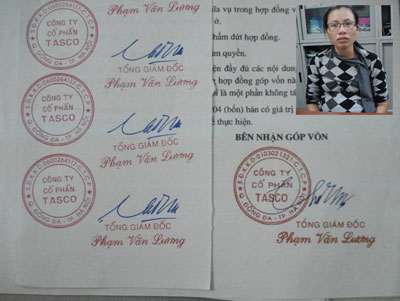 Phạm Văn Lương
CÔNG TY
CỔ PHẦN
TASCO
Q. ĐỐNG ĐA - TP. HÀ NỘI
TỔNG GIÁM ĐỐC
Phạm Văn Lương
CÔNG TY
CỔ PHẦN
TASCO
Q. ĐỐNG ĐA - TP. HÀ NỘI
TỔNG GIÁM ĐỐC
Phạm Văn Lương
CÔNG TY
CỔ PHẦN
TASCO
Q. ĐỐNG ĐA - TP. HÀ NỘI
TỔNG GIÁM ĐỐC
Phạm Văn Lương
ĩa vụ trong hợp đồng v
ờ.
hấm dứt hợp đồng.
ẩm quyền.
iện đầy đủ các nội dun
hợp đồng góp vốn nà
ể là một phần không tá
04 (bốn) bản có giá trị
ể thực hiện.
BÊN NHẬN GÓP VỐN
CÔNG TY
CỔ PHẦN
TASCO
Q. ĐỐNG ĐA - TP. HÀ NỘI
TỔNG GIÁM ĐỐC
Phạm Văn Lương